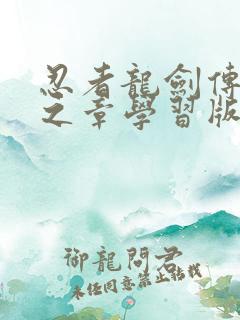 忍者龍劍傳
之章學習版
御龍問君
未经同意禁止转载